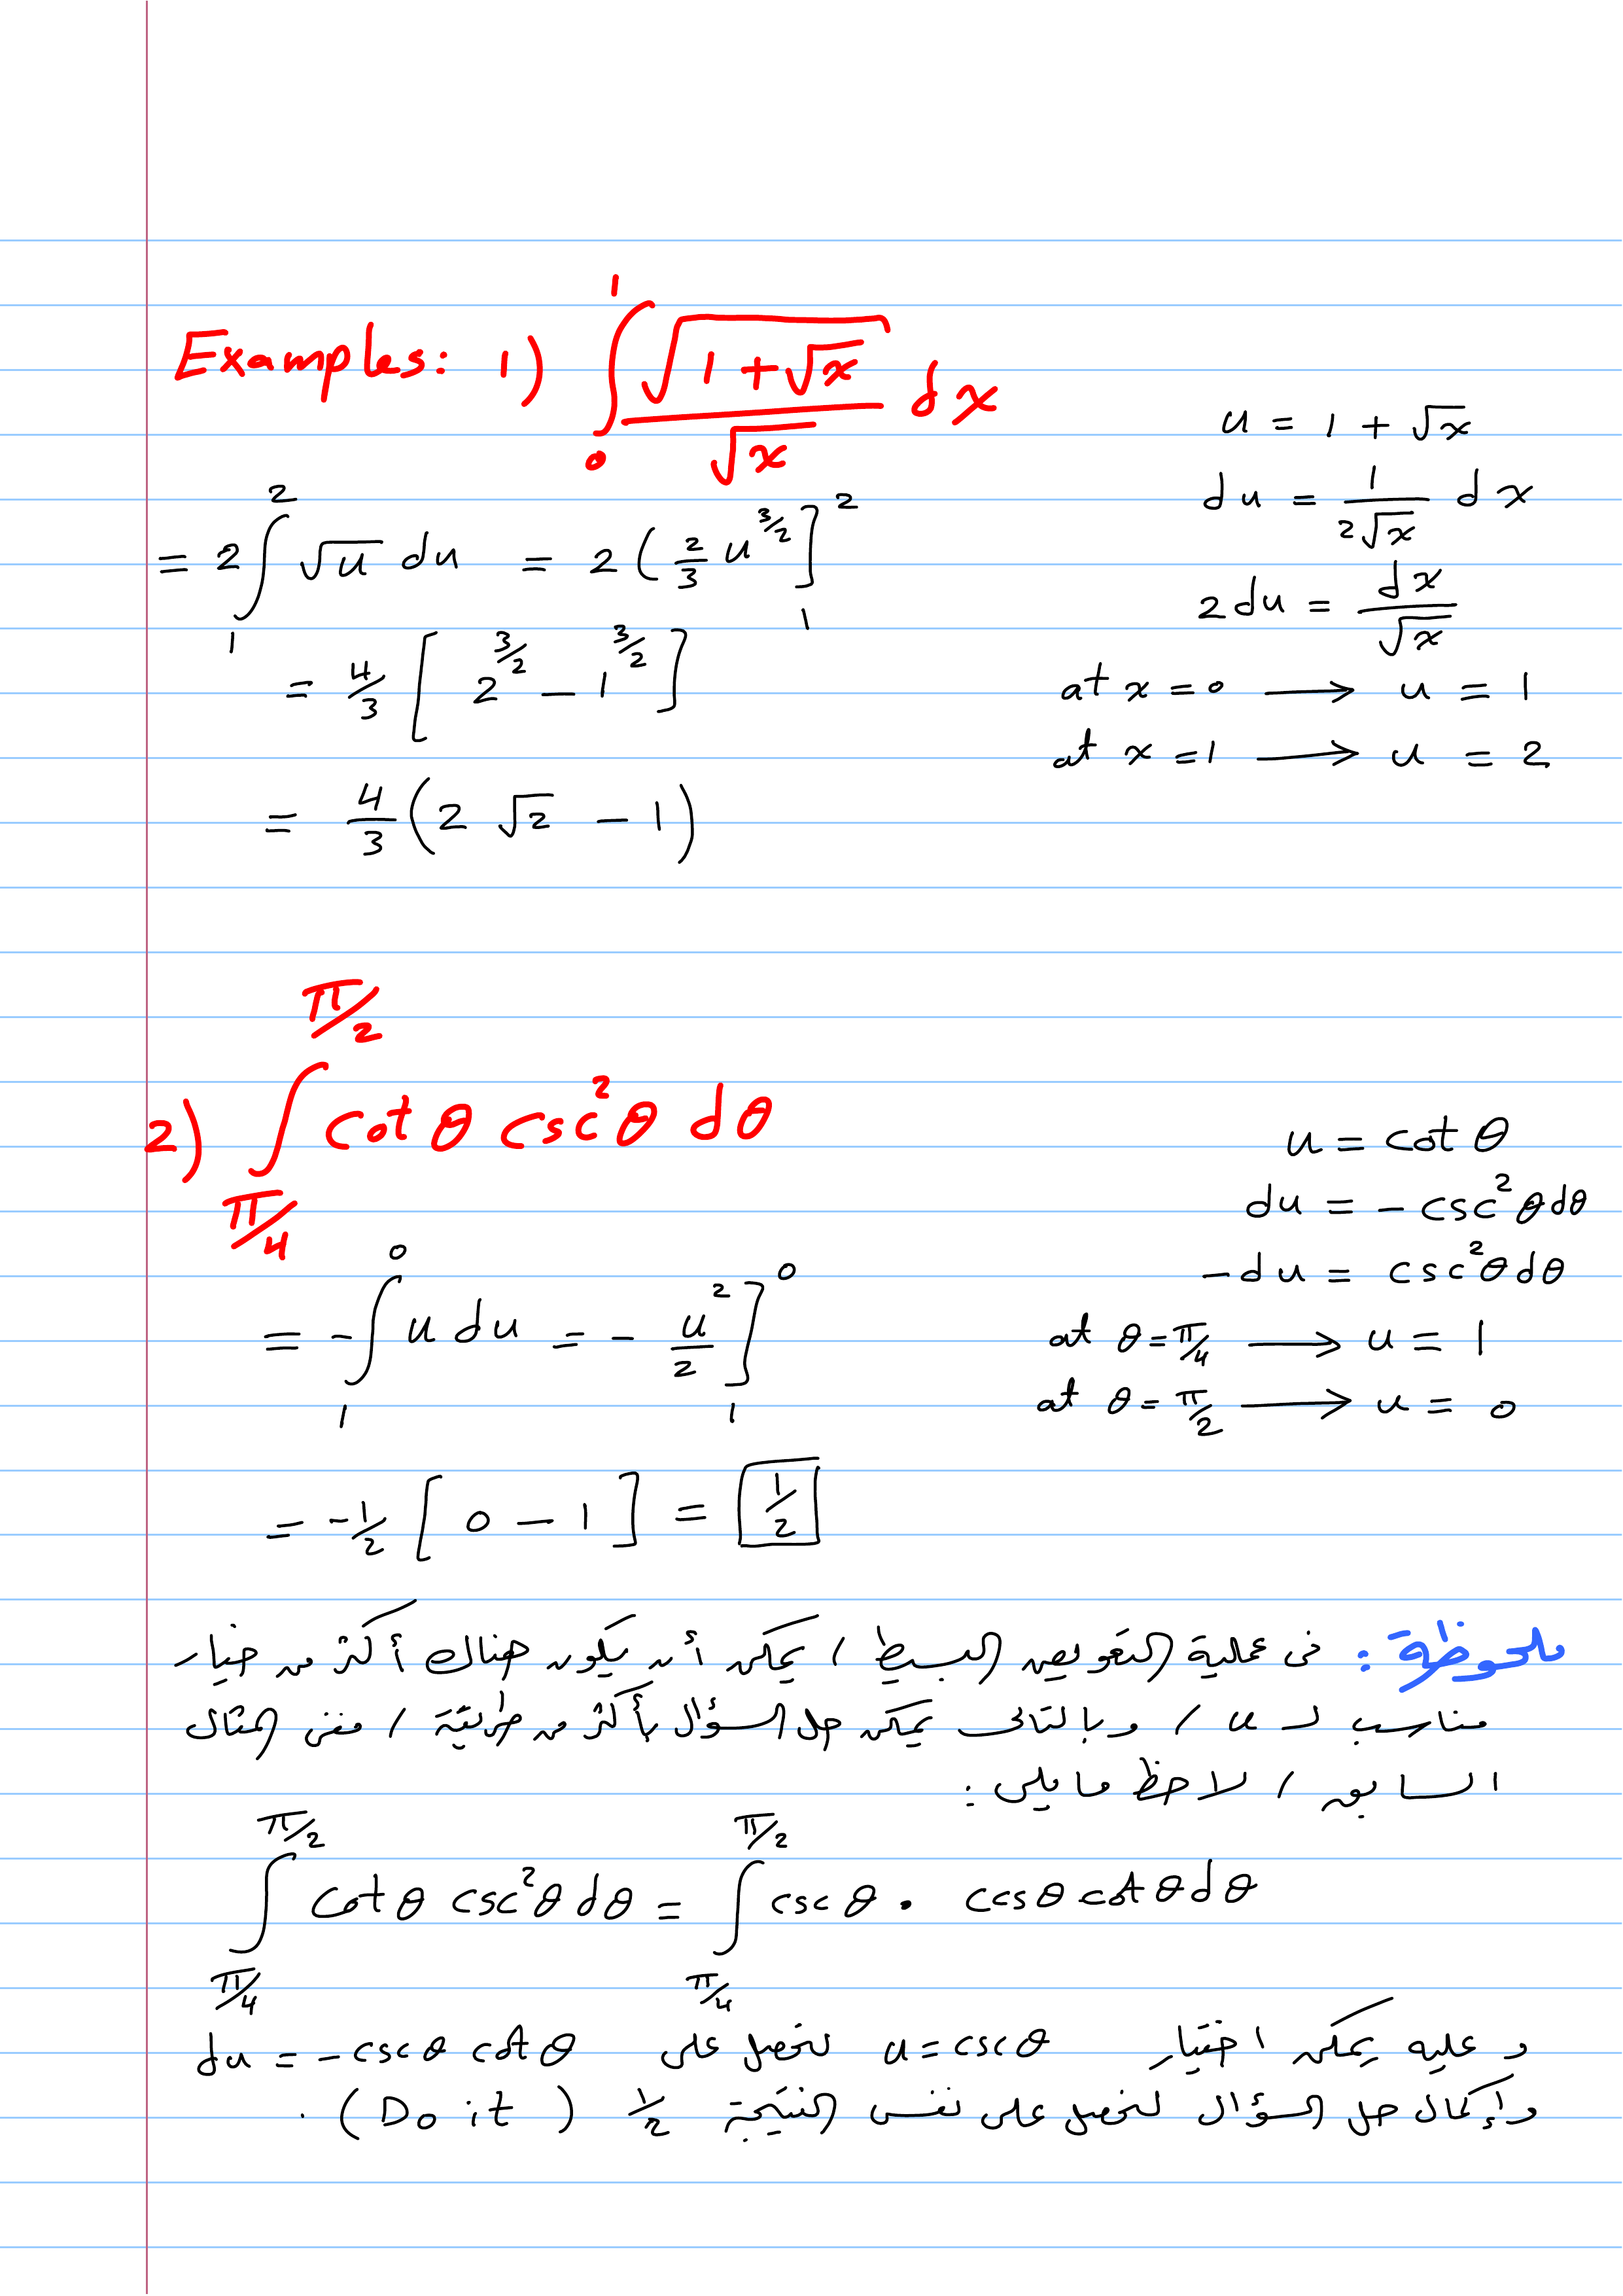 Examples: 1) ∫₀¹ √(1+√x)/√x dx
u = 1 + √x
du = 1/(2√x) dx
= 2 ∫₁² √u du = 2 ( 2/3 u^(3/2) ]₁²
2 du = dx/√x
= 4/3 [ 2^(3/2) − 1^(3/2) ]
at x = 0 ⟶ u = 1
at x = 1 ⟶ u = 2
= 4/3 ( 2 √2 − 1 )
2) ∫_(π/4)^(π/2) cot θ csc² θ dθ
u = cot θ
du = − csc² θ dθ
− du = csc² θ dθ
= − ∫₁⁰ u du = − u²/2 ]₁⁰
at θ = π/4 ⟶ u = 1
at θ = π/2 ⟶ u = 0
= − 1/2 [ 0 − 1 ] = 1/2
ملحوظة : في عملية التعويض البسيط ، يمكن أن يكون هناك أكثر من خيار
مناسب لـ u ، وبالتالي يمكن حل السؤال بأكثر من طريقة ، ففي المثال
السابق ، لاحظ ما يلي :
∫_(π/4)^(π/2) cot θ csc² θ dθ = ∫_(π/4)^(π/2) csc θ · ccs θ cot θ dθ
وعليه يمكن اختيار u = csc θ لنحصل على du = − csc θ cot θ
وإكمال حل السؤال لنحصل على نفس النتيجة 1/2 ( Do it ) .